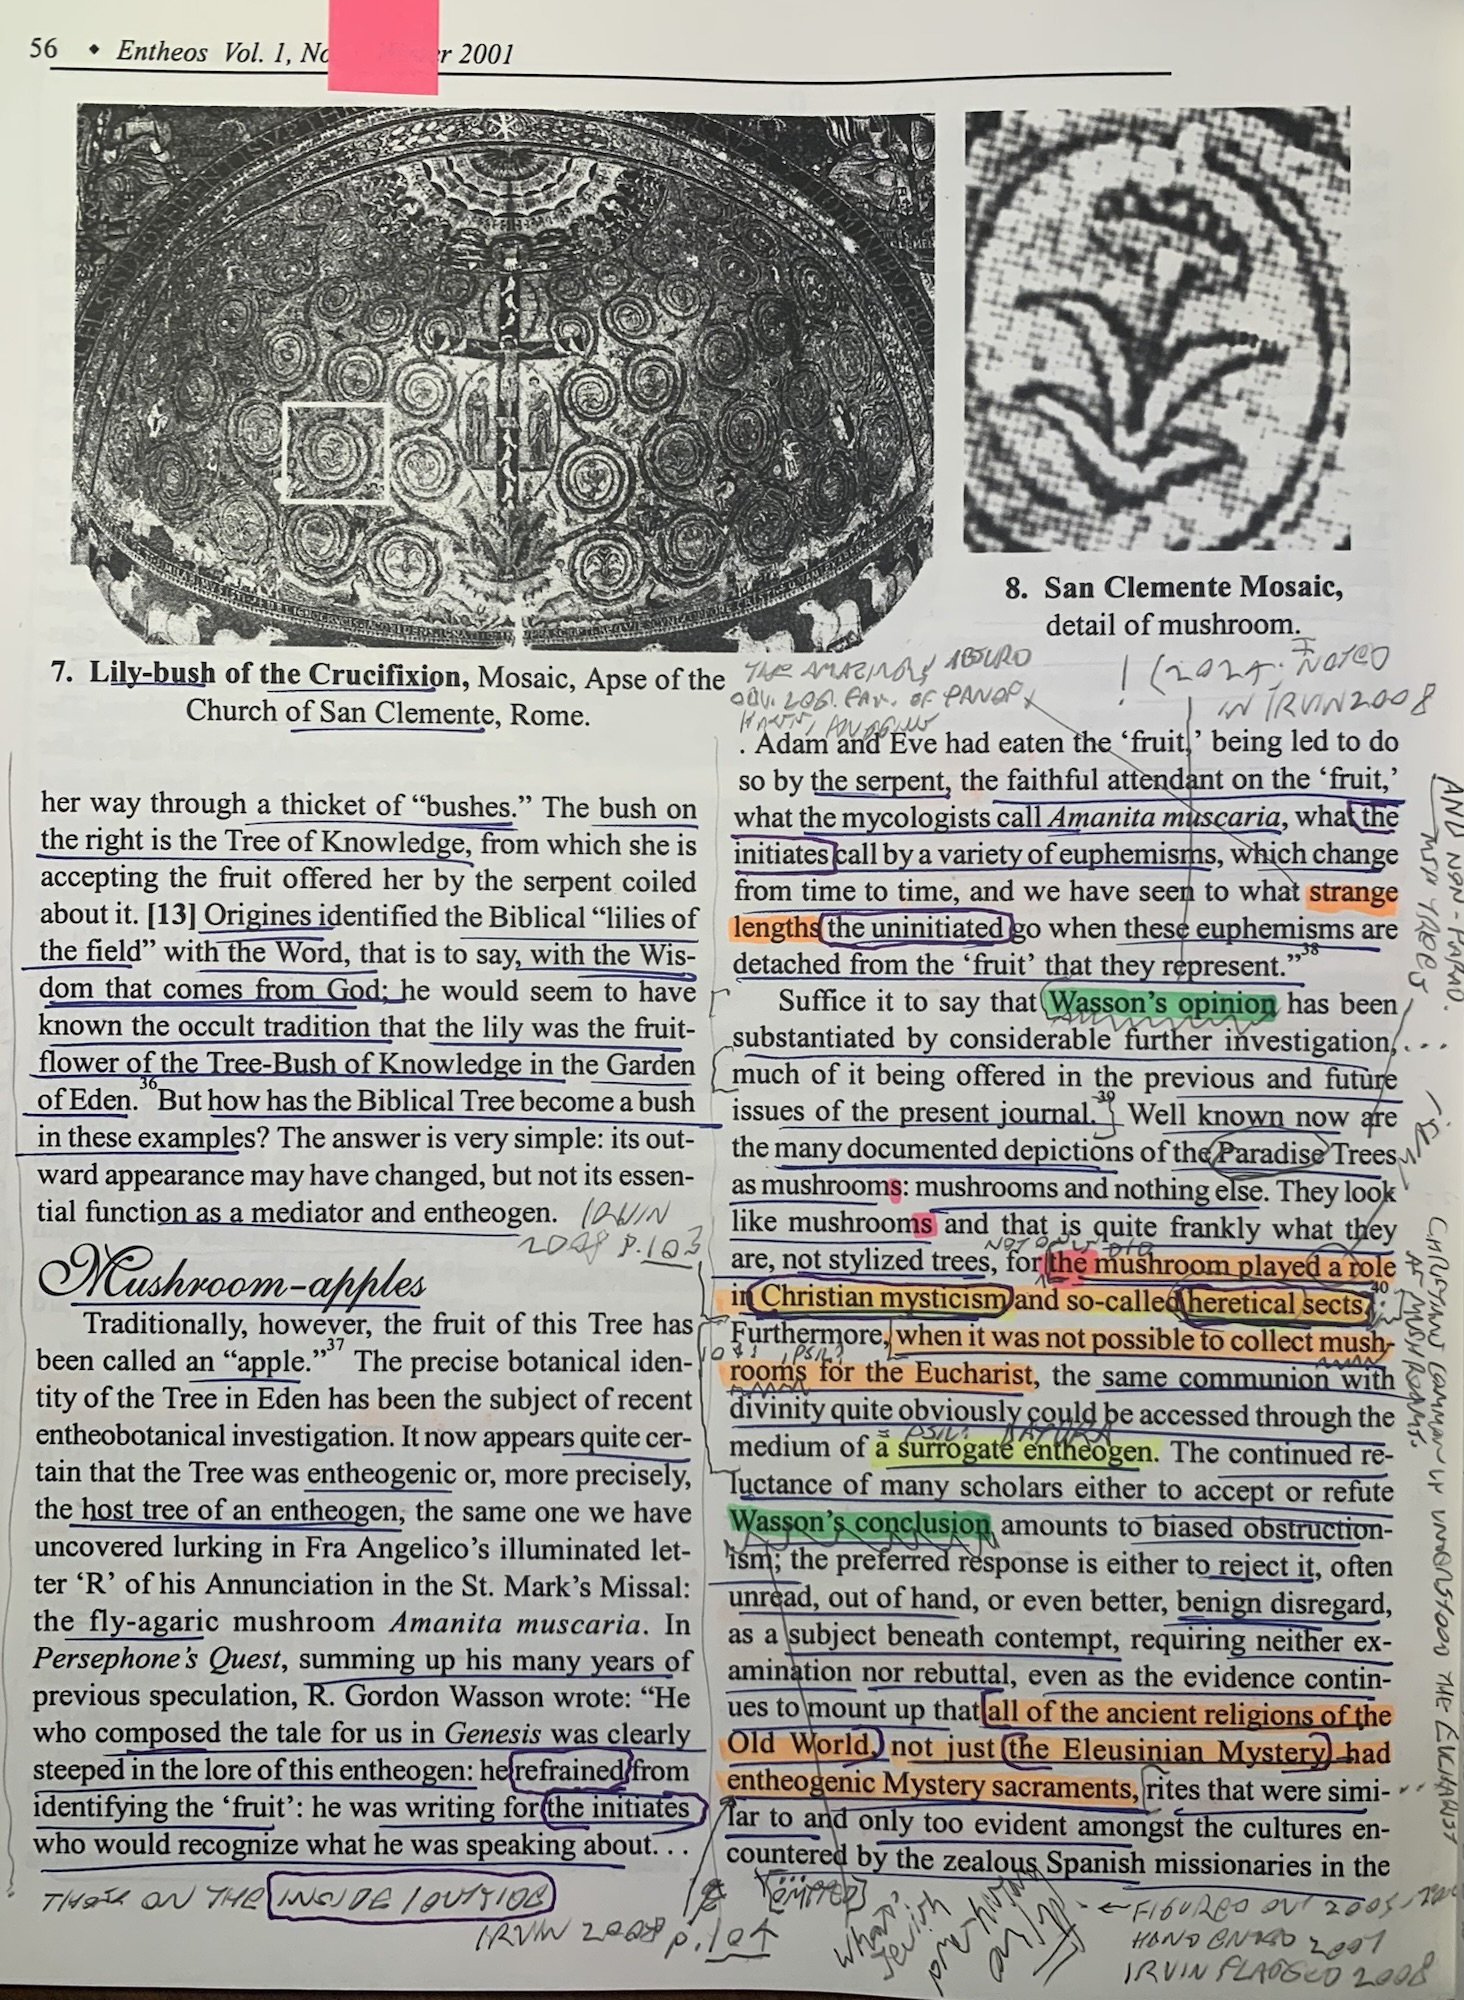 56 • Entheos Vol. 1, No r 2001
7. Lily-bush of the Crucifixion, Mosaic, Apse of the
Church of San Clemente, Rome.
8. San Clemente Mosaic,
detail of mushroom.
her way through a thicket of “bushes.” The bush on
the right is the Tree of Knowledge, from which she is
accepting the fruit offered her by the serpent coiled
about it. [13] Origines identified the Biblical “lilies of
the field” with the Word, that is to say, with the Wis-
dom that comes from God; he would seem to have
known the occult tradition that the lily was the fruit-
flower of the Tree-Bush of Knowledge in the Garden
of Eden.36 But how has the Biblical Tree become a bush
in these examples? The answer is very simple: its out-
ward appearance may have changed, but not its essen-
tial function as a mediator and entheogen.
IRVIN
2008 p.103
Mushroom-apples
Traditionally, however, the fruit of this Tree has
been called an “apple.”37 The precise botanical iden-
tity of the Tree in Eden has been the subject of recent
entheobotanical investigation. It now appears quite cer-
tain that the Tree was entheogenic or, more precisely,
the host tree of an entheogen, the same one we have
uncovered lurking in Fra Angelico’s illuminated let-
ter ‘R’ of his Annunciation in the St. Mark’s Missal:
the fly-agaric mushroom Amanita muscaria. In
Persephone’s Quest, summing up his many years of
previous speculation, R. Gordon Wasson wrote: “He
who composed the tale for us in Genesis was clearly
steeped in the lore of this entheogen: he refrained from
identifying the ‘fruit’: he was writing for the initiates
who would recognize what he was speaking about. . .
THOSE ON THE INSIDE/OUTSIDE
IRVIN 2008 p.104
THE AMAZINGLY ABSURD
! (2024: I NOTED
IN IRVIN 2008
. Adam and Eve had eaten the ‘fruit,’ being led to do
so by the serpent, the faithful attendant on the ‘fruit,’
what the mycologists call Amanita muscaria, what the
initiates call by a variety of euphemisms, which change
from time to time, and we have seen to what strange
lengths the uninitiated go when these euphemisms are
detached from the ‘fruit’ that they represent.”38
Suffice it to say that Wasson’s opinion has been
substantiated by considerable further investigation,
much of it being offered in the previous and future
issues of the present journal.39 Well known now are
the many documented depictions of the Paradise Trees
as mushrooms: mushrooms and nothing else. They look
like mushrooms and that is quite frankly what they
are, not stylized trees, for the mushroom played a role
in Christian mysticism and so-called heretical sects.40
Furthermore, when it was not possible to collect mush-
rooms for the Eucharist, the same communion with
divinity quite obviously could be accessed through the
PSIL? DATURA
medium of a surrogate entheogen. The continued re-
luctance of many scholars either to accept or refute
Wasson’s conclusion amounts to biased obstruction-
ism; the preferred response is either to reject it, often
unread, out of hand, or even better, benign disregard,
as a subject beneath contempt, requiring neither ex-
amination nor rebuttal, even as the evidence contin-
ues to mount up that all of the ancient religions of the
Old World, not just the Eleusinian Mystery had
entheogenic Mystery sacraments, rites that were simi-
lar to and only too evident amongst the cultures en-
countered by the zealous Spanish missionaries in the
IRVIN FLAGGED 2008